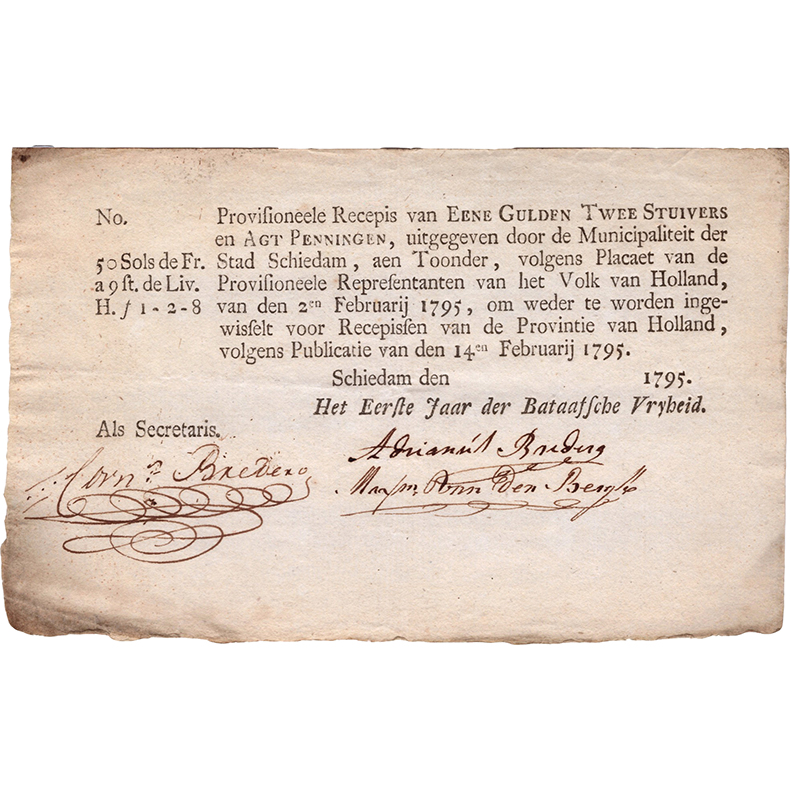 No. Provisioneele Recepis van EENE GULDEN TWEE STUIVERS
en AGT PENNINGEN, uitgegeven door de Municipaliteit der
50 Sols de Fr. Stad Schiedam, aen Toonder, volgens Placaet van de
a 9 st. de Liv. Provisioneele Representanten van het Volk van Holland,
H. ƒ 1-2-8 van den 2en Februarij 1795, om weder te worden inge-
wisselt voor Recepissen van de Provintie van Holland,
volgens Publicatie van den 14en Februarij 1795.
Schiedam den 1795.
Het Eerste Jaar der Bataafsche Vryheid.
Als Secretaris.
Adrianus Bredero
Corn.s Bredero
van Den Bergh